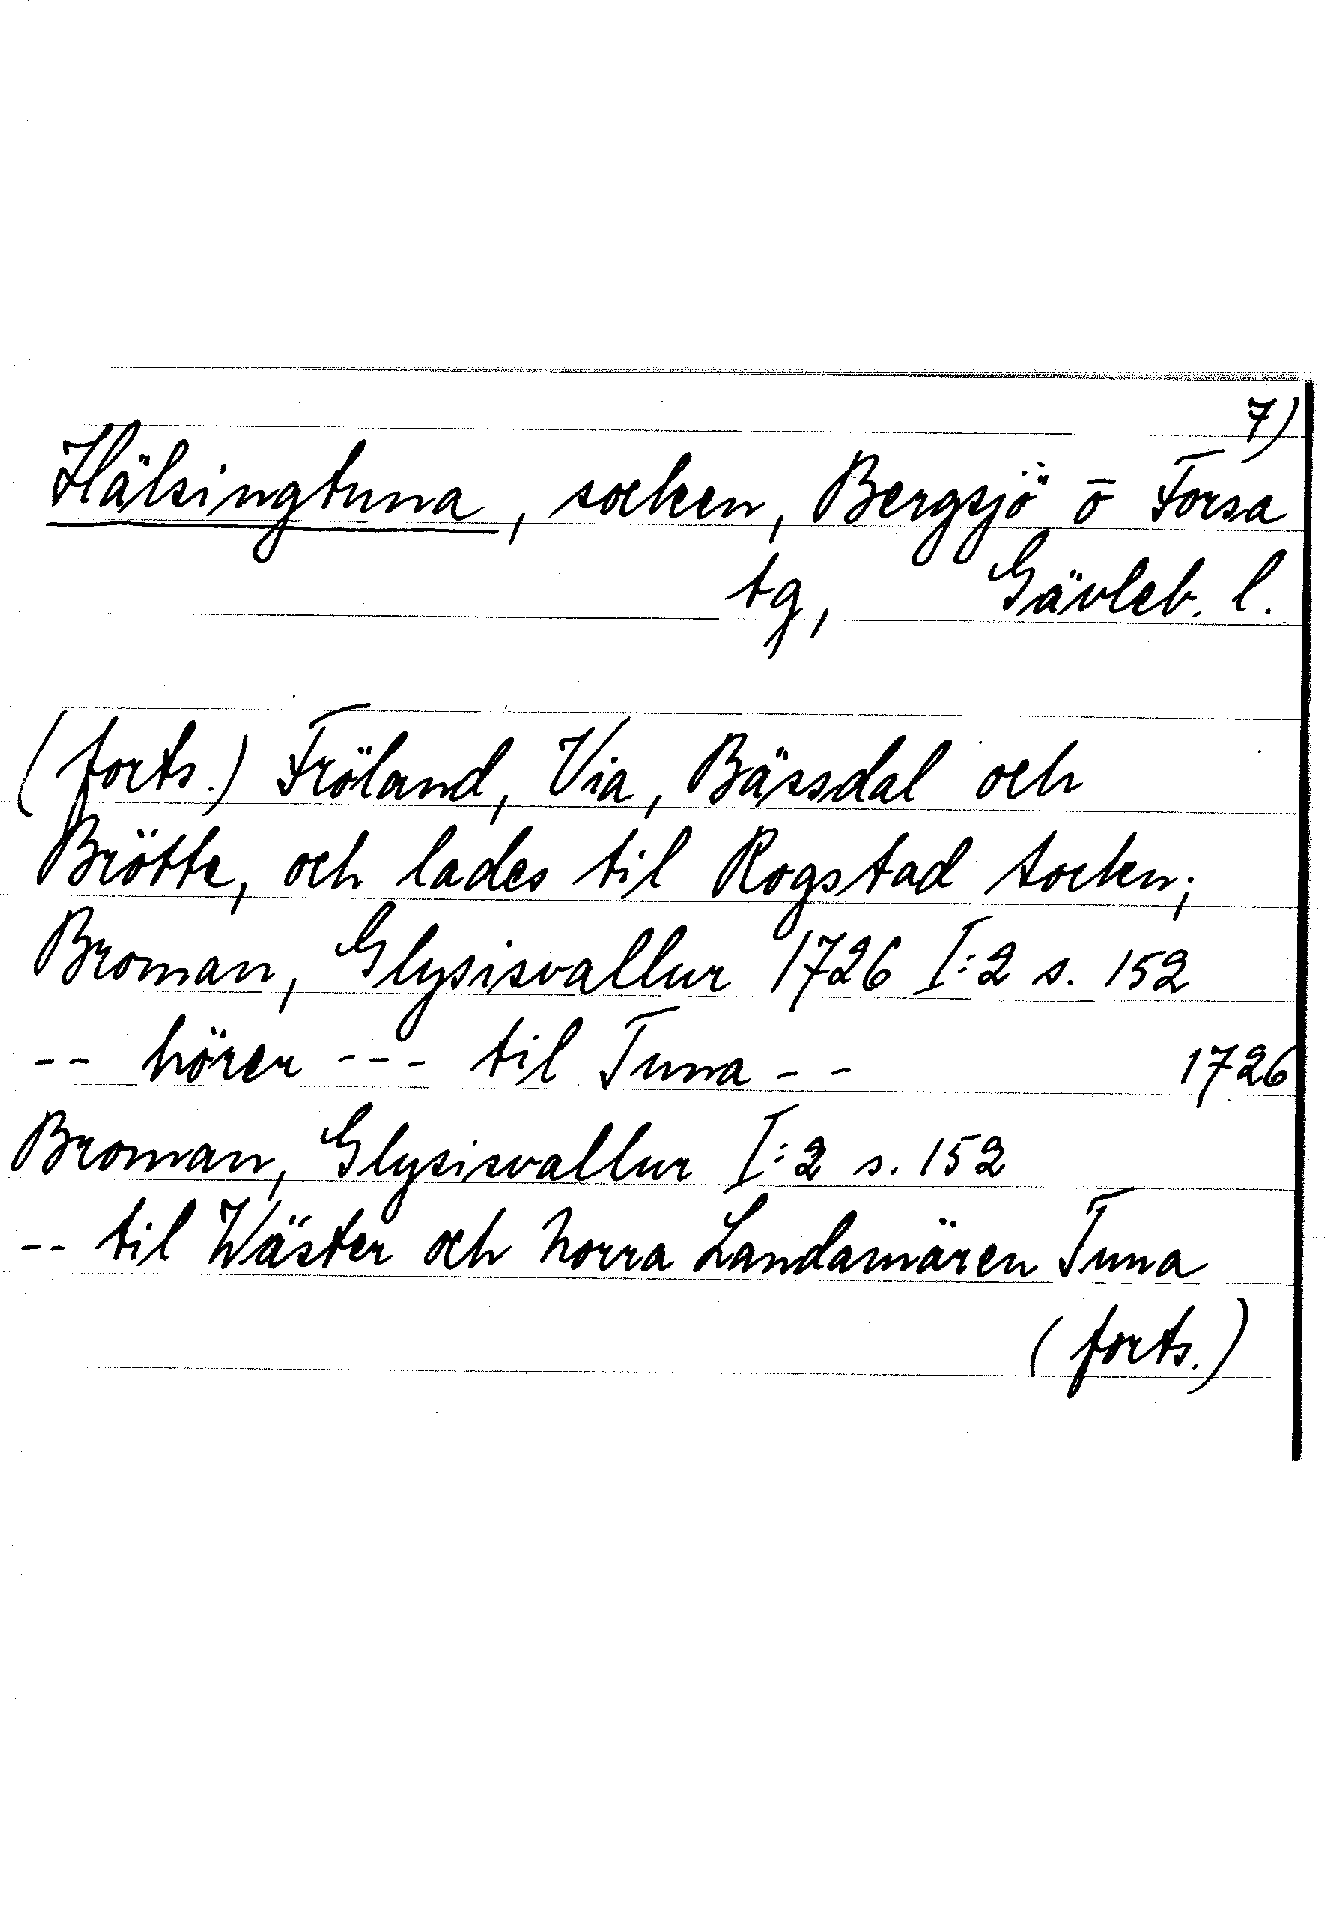 7)
Hälsingtuna, socken, Bergsjö o Forsa
tg, Gävleb. l.
(forts.) Fröland, Via, Bässdal och
Brötte, och lades til Rogstad socken;
Broman, Glysisvallur 1726 I:2 s. 152
-- hörer --- til Tuna -- 1726
Broman, Glysisvallur I:2 s. 152
-- til Wäster och Norra Landamären Tuna
(forts.)